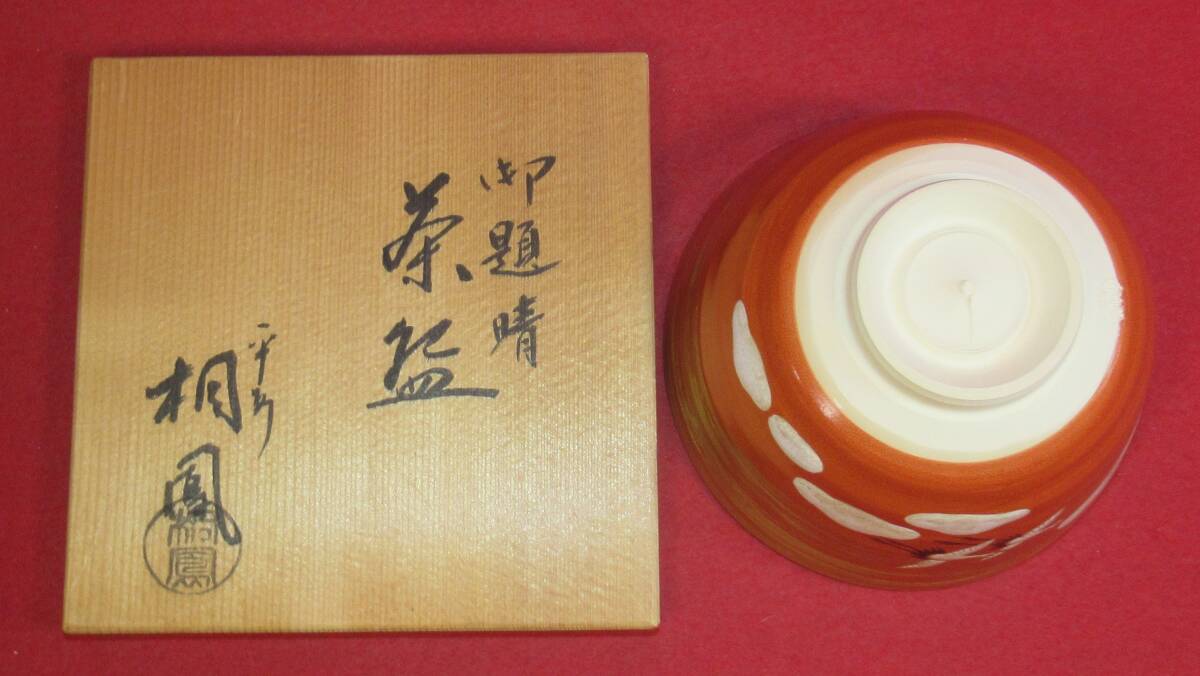 御題 晴
茶盌
平安
桐鳳
桐鳳